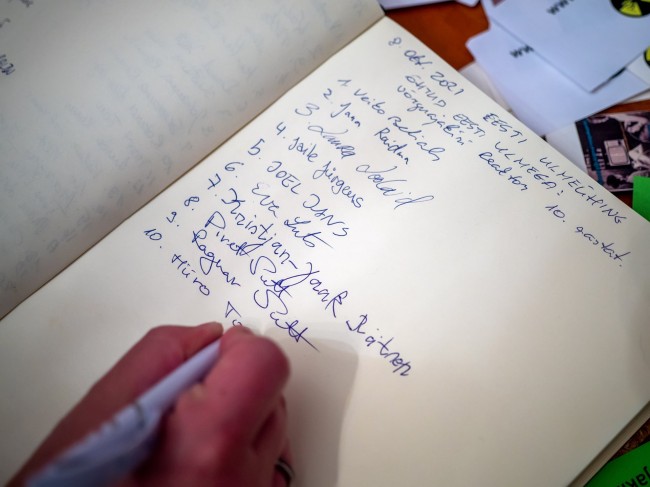 8. okt. 2021 EESTI ULMEÜHING
ÕHTUD EESTI ULMEGA:
Reaktor 10. aastat.
1. Veiko Belials
2. Jaan Randma
3. Laura Loolaid
4. Jaile Jürgens
5. JOEL JANS
6. Eva Luts
7. Kristjan-Jaak Rätsep
8. Pirett Sutt
9. Ragnar Sutt
10. Hüro
www
www